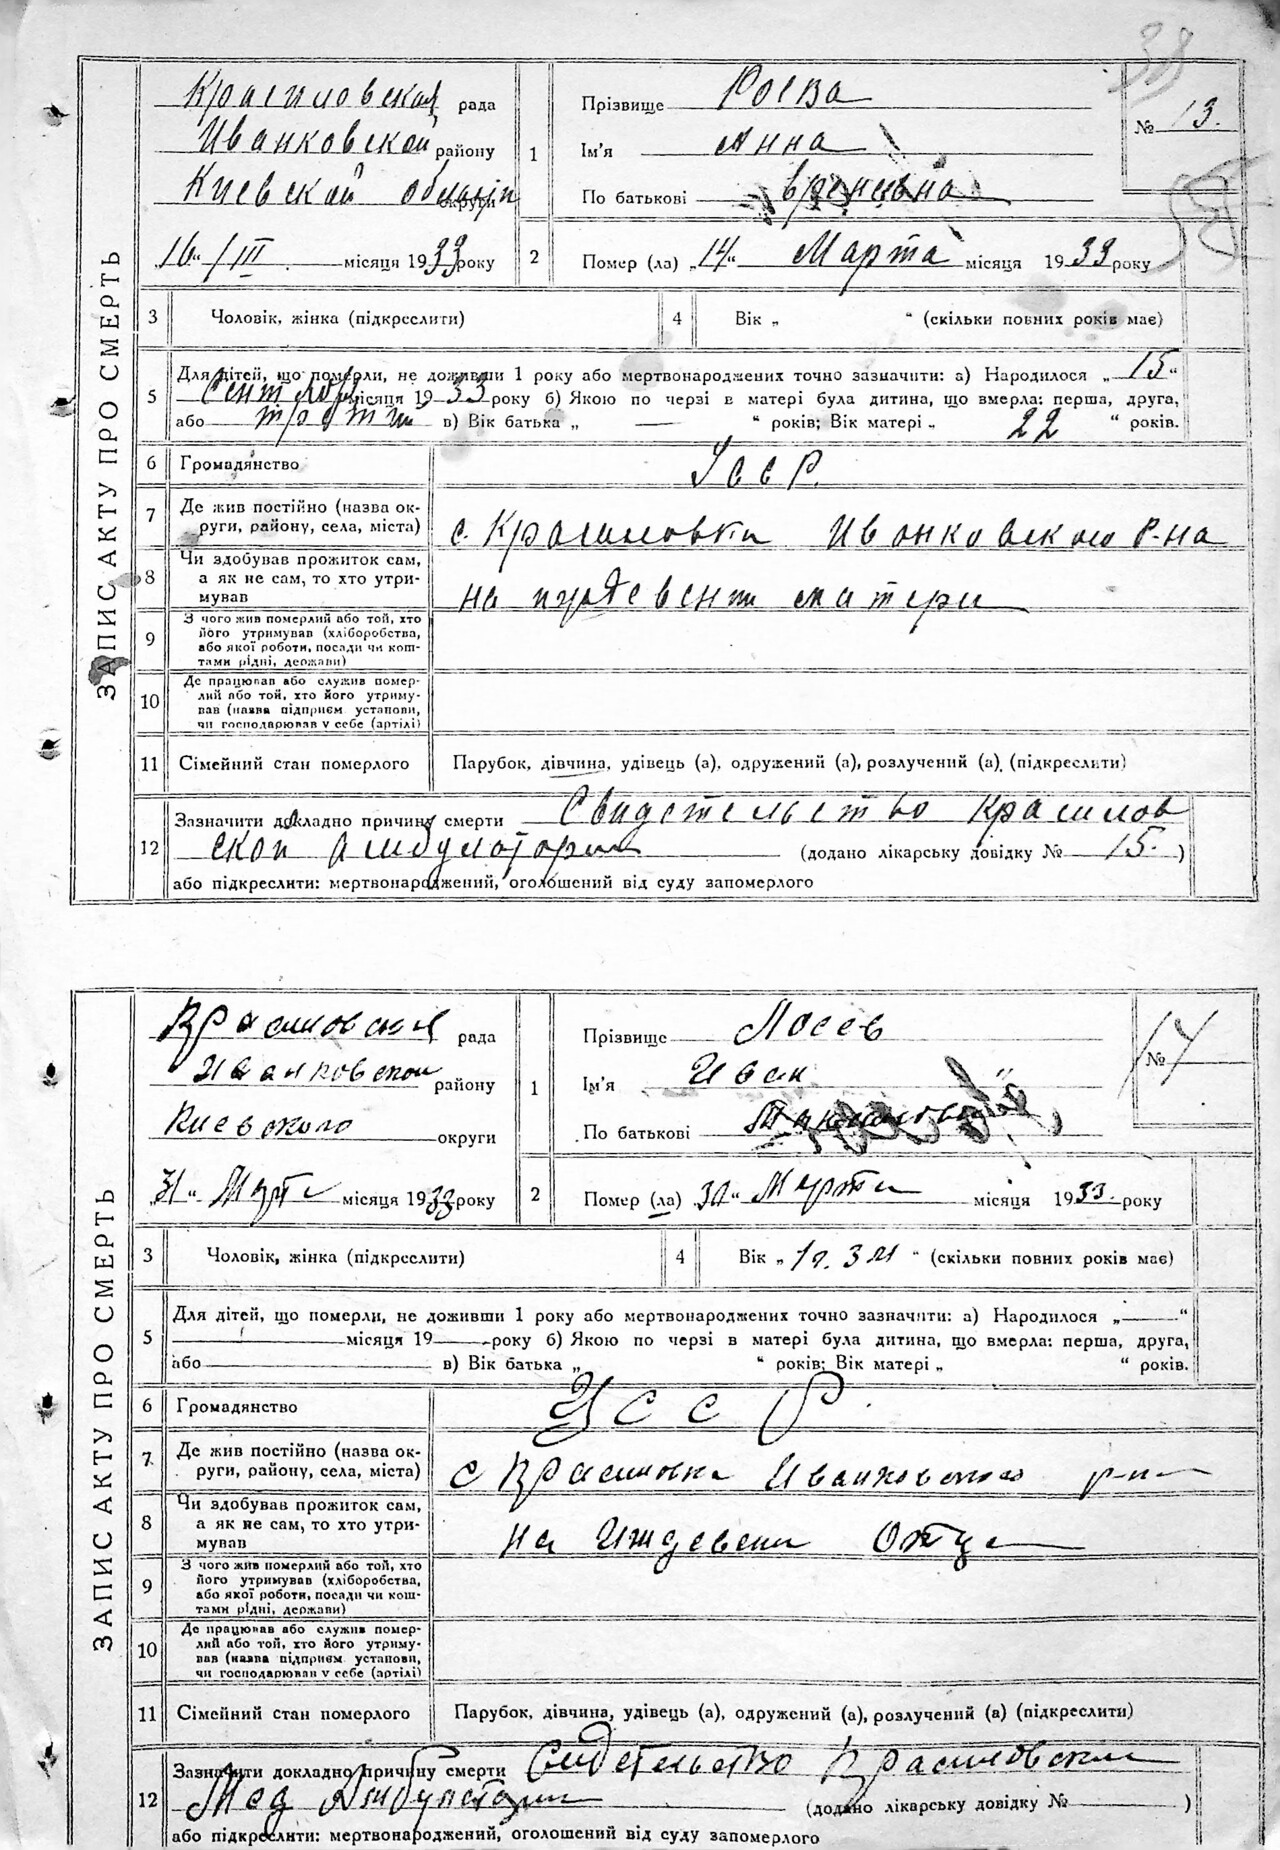 38
ЗАПИС АКТУ ПРО СМЕРТЬ
Красиловская рада
Иванковской району
Киевской области округи
„16“ /III місяця 1933 року
1
Прізвище Росва
Ім'я Анна
По батькові
№ 13.
2
Помер (ла) „14“ Марта місяця 1933 року
3 Чоловік, жінка (підкреслити)
4 Вік „ “ (скільки повних років має)
5 Для дітей, що померли, не доживши 1 року або мертвонароджених точно зазначити: а) Народилося „15“
місяця 1933 року б) Якою по черзі в матері була дитина, що вмерла: перша, друга,
або третий в) Вік батька „ — “ років; Вік матері „ 22 “ років.
6 Громадянство УССР.
7 Де жив постійно (назва ок-
руги, району, села, міста) с. Красиловка Иванковского Р-на
8 Чи здобував прожиток сам,
а як не сам, то хто утри-
мував на матери
9 З чого жив померлий або той, хто
його утримував (хліборобства,
або якої роботи, посади чи кош-
тами рідні, держави)
10 Де працював або служив помер-
лий або той, хто його утриму-
вав (назва підприєм установи,
чи господарював у себе (артілі)
11 Сімейний стан померлого Парубок, дівчина, удівець (а), одружений (а), розлучений (а) (підкреслити)
12 Зазначити докладно причину смерти Свидетельство Красилов
ской Амбулатории (додано лікарську довідку № 15. )
або підкреслити: мертвонароджений, оголошений від суду запомерлого
ЗАПИС АКТУ ПРО СМЕРТЬ
Красиловская рада
Иванковской району
Киевского округи
„31“ Марта місяця 1933 року
1
Прізвище Лосев
Ім'я Иван
По батькові
№ 14
2
Помер (ла) „ “ Марта місяця 1933. року
3 Чоловік, жінка (підкреслити)
4 Вік „ 1 г. 3 м “ (скільки повних років має)
5 Для дітей, що померли, не доживши 1 року або мертвонароджених точно зазначити: а) Народилося „—“
— місяця 19— року б) Якою по черзі в матері була дитина, що вмерла: перша, друга,
або — в) Вік батька „ “ років; Вік матері „ “ років.
6 Громадянство УССР.
7 Де жив постійно (назва ок-
руги, району, села, міста) с Красиловка Иванковского р-на
8 Чи здобував прожиток сам,
а як не сам, то хто утри-
мував на Иждевени Отца
9 З чого жив померлий або той, хто
його утримував (хліборобства,
або якої роботи, посади чи кош-
тами рідні, держави)
10 Де працював або служив помер-
лий або той, хто його утриму-
вав (назва підприєм установи,
чи господарював у себе (артілі)
11 Сімейний стан померлого Парубок, дівчина, удівець (а), одружений (а), розлучений (а) (підкреслити)
12 Зазначити докладно причину смерти Сидетельство Красиловской
Мед Амбулатории (додано лікарську довідку № )
або підкреслити: мертвонароджений, оголошений від суду запомерлого